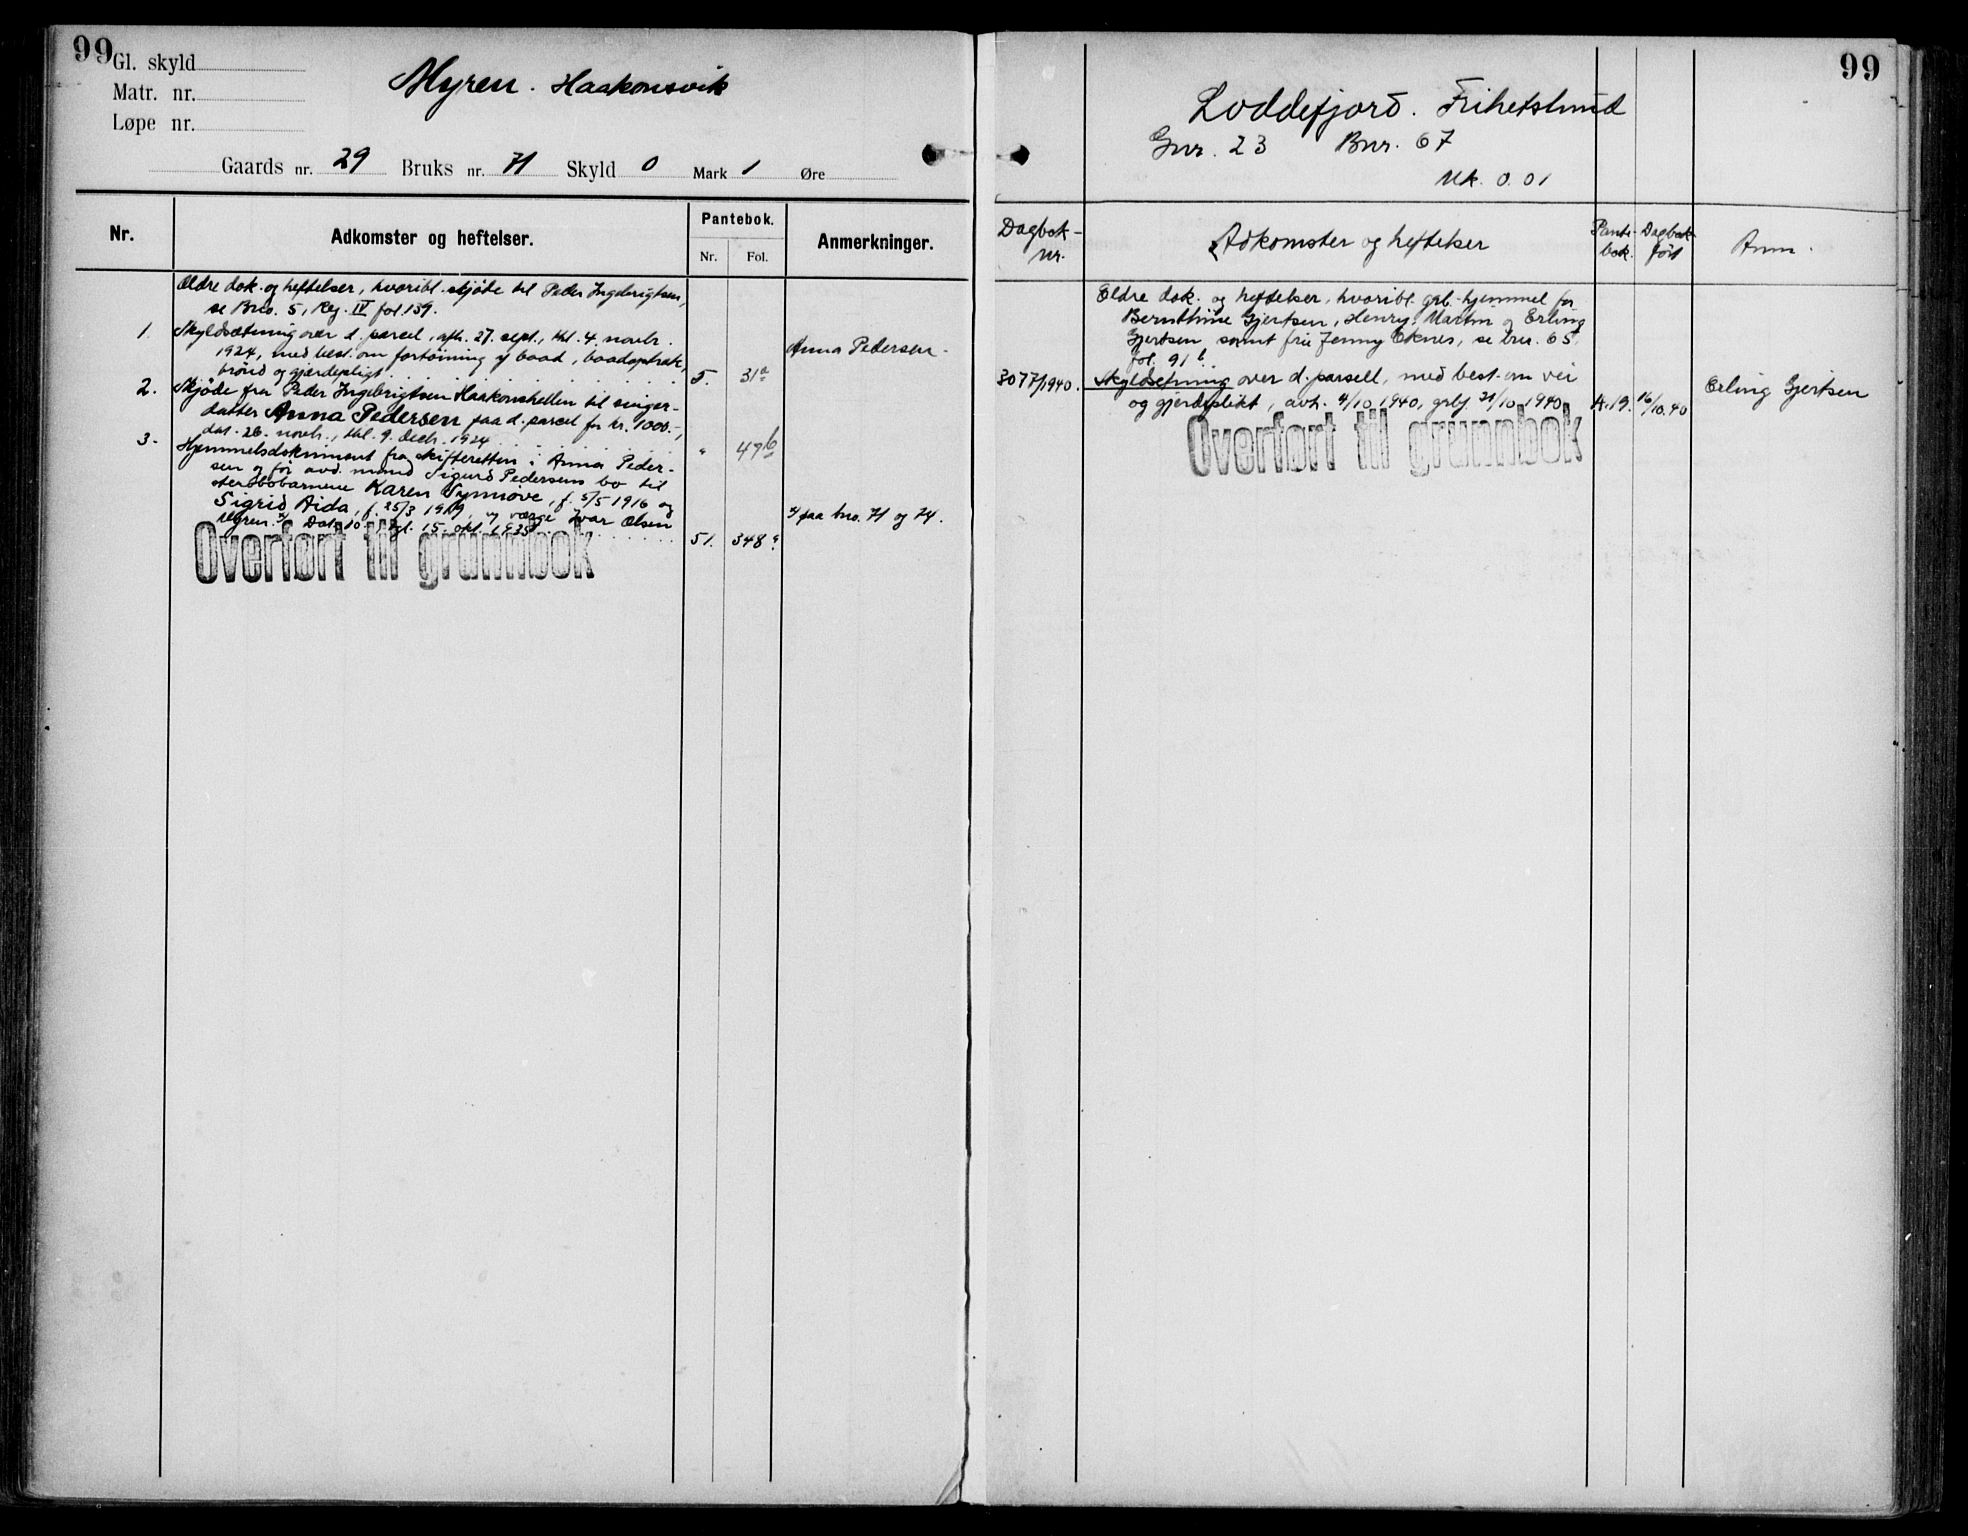 99
Gl. skyld
Matr. nr.
Løpe nr.
Myren. Haakonsvik
Gaards nr. 29 Bruks nr. 71 Skyld 0 Mark 1 Øre
Nr.
Adkomster og heftelser.
Pantebok.
Nr. Fol.
Anmerkninger.
Ældre dok. og heftelser, hvoribl. skjøde til Peder Ingebrigtsen,
se Bno. 5, Reg. IV fol 139.
1. Skyldsætning over d. parcel, afh. 27. sept., thl. 4. novbr.
1924, med best. om fortöining af baad, baadoptræk,
brönd og gjærdepligt. 5. 31a
Anna Pedersen.
2. Skjøde fra Peder Ingebrigtsen Haakonshellen til
datter Anna Pedersen paa d. parcel for kr. 1000.-,
dat. 26. novbr., thl. 9. decb. 1924 " 47b
3. Hjemmelsdokument fra skifteretten i Anna Peder-
sen og før avd. mand Sigurd Pedersens bo til
sterbobarnene Karen Synnöve, f. 5/5 1916 og
Sigrid Aida, f. 25/3 1919, og værge Ivar Olsen
Dat. 10., tgl. 15. okt. 1935. 51. 348a
x/ paa bno. 71 og 74.
Overført til grunnbok
99
Loddefjord. Frihetslund
Gnr. 23 Bnr. 67
Mk. 0.01
Dagbok-
nr.
Adkomster og heftelser
Pante-
bok.
Dagbok
ført
Anm.
Eldre dok. og heftelser, hvoribl. grb. hjemmel for
Bernthine Gjertsen, Henry, Martin og Erling
Gjertsen samt fru Jenny Eknes, se bnr. 65,
fol. 91b.
3077/1940. Skyldsetning over d. parsell, med best. om vei
og gjerdeplikt, avh. 4/10 1940, grbf. 21/10 1940 A.19. 16/10.40
Erling Gjertsen
Overført til grunnbok